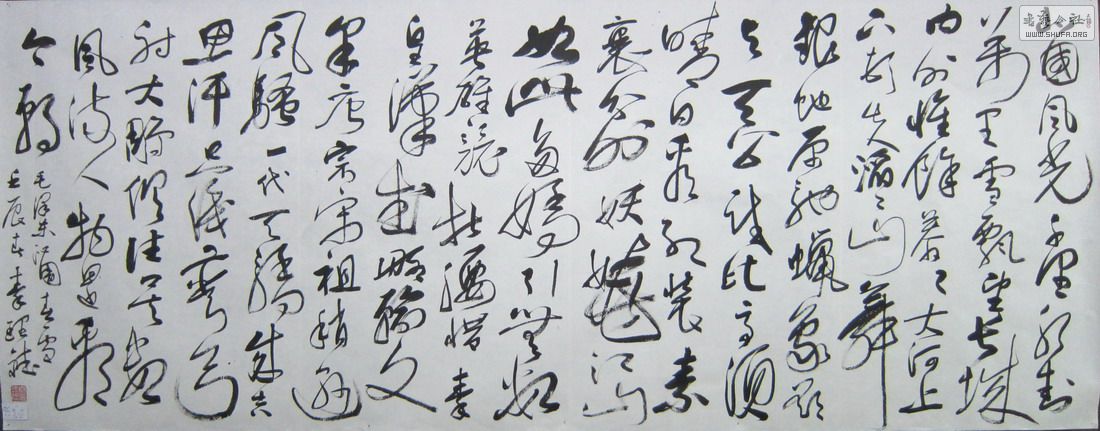 北国风光千里冰封
万里雪飘望长城
内外惟余莽々大河上
下顿失滔々山舞
银蛇原驰蜡象欲
与天公试比高须
晴日看红装素
裹分外妖娆江山
如此多娇引无数
英雄竞折腰惜秦
皇汉武略输文
采唐宗宋祖稍逊
风骚一代天骄成吉
思汗只识弯弓
射大雕俱往矣数
风流人物还看
今朝
毛泽东沁园春雪
壬辰春
书法合社
WWW.SHUFA.ORG